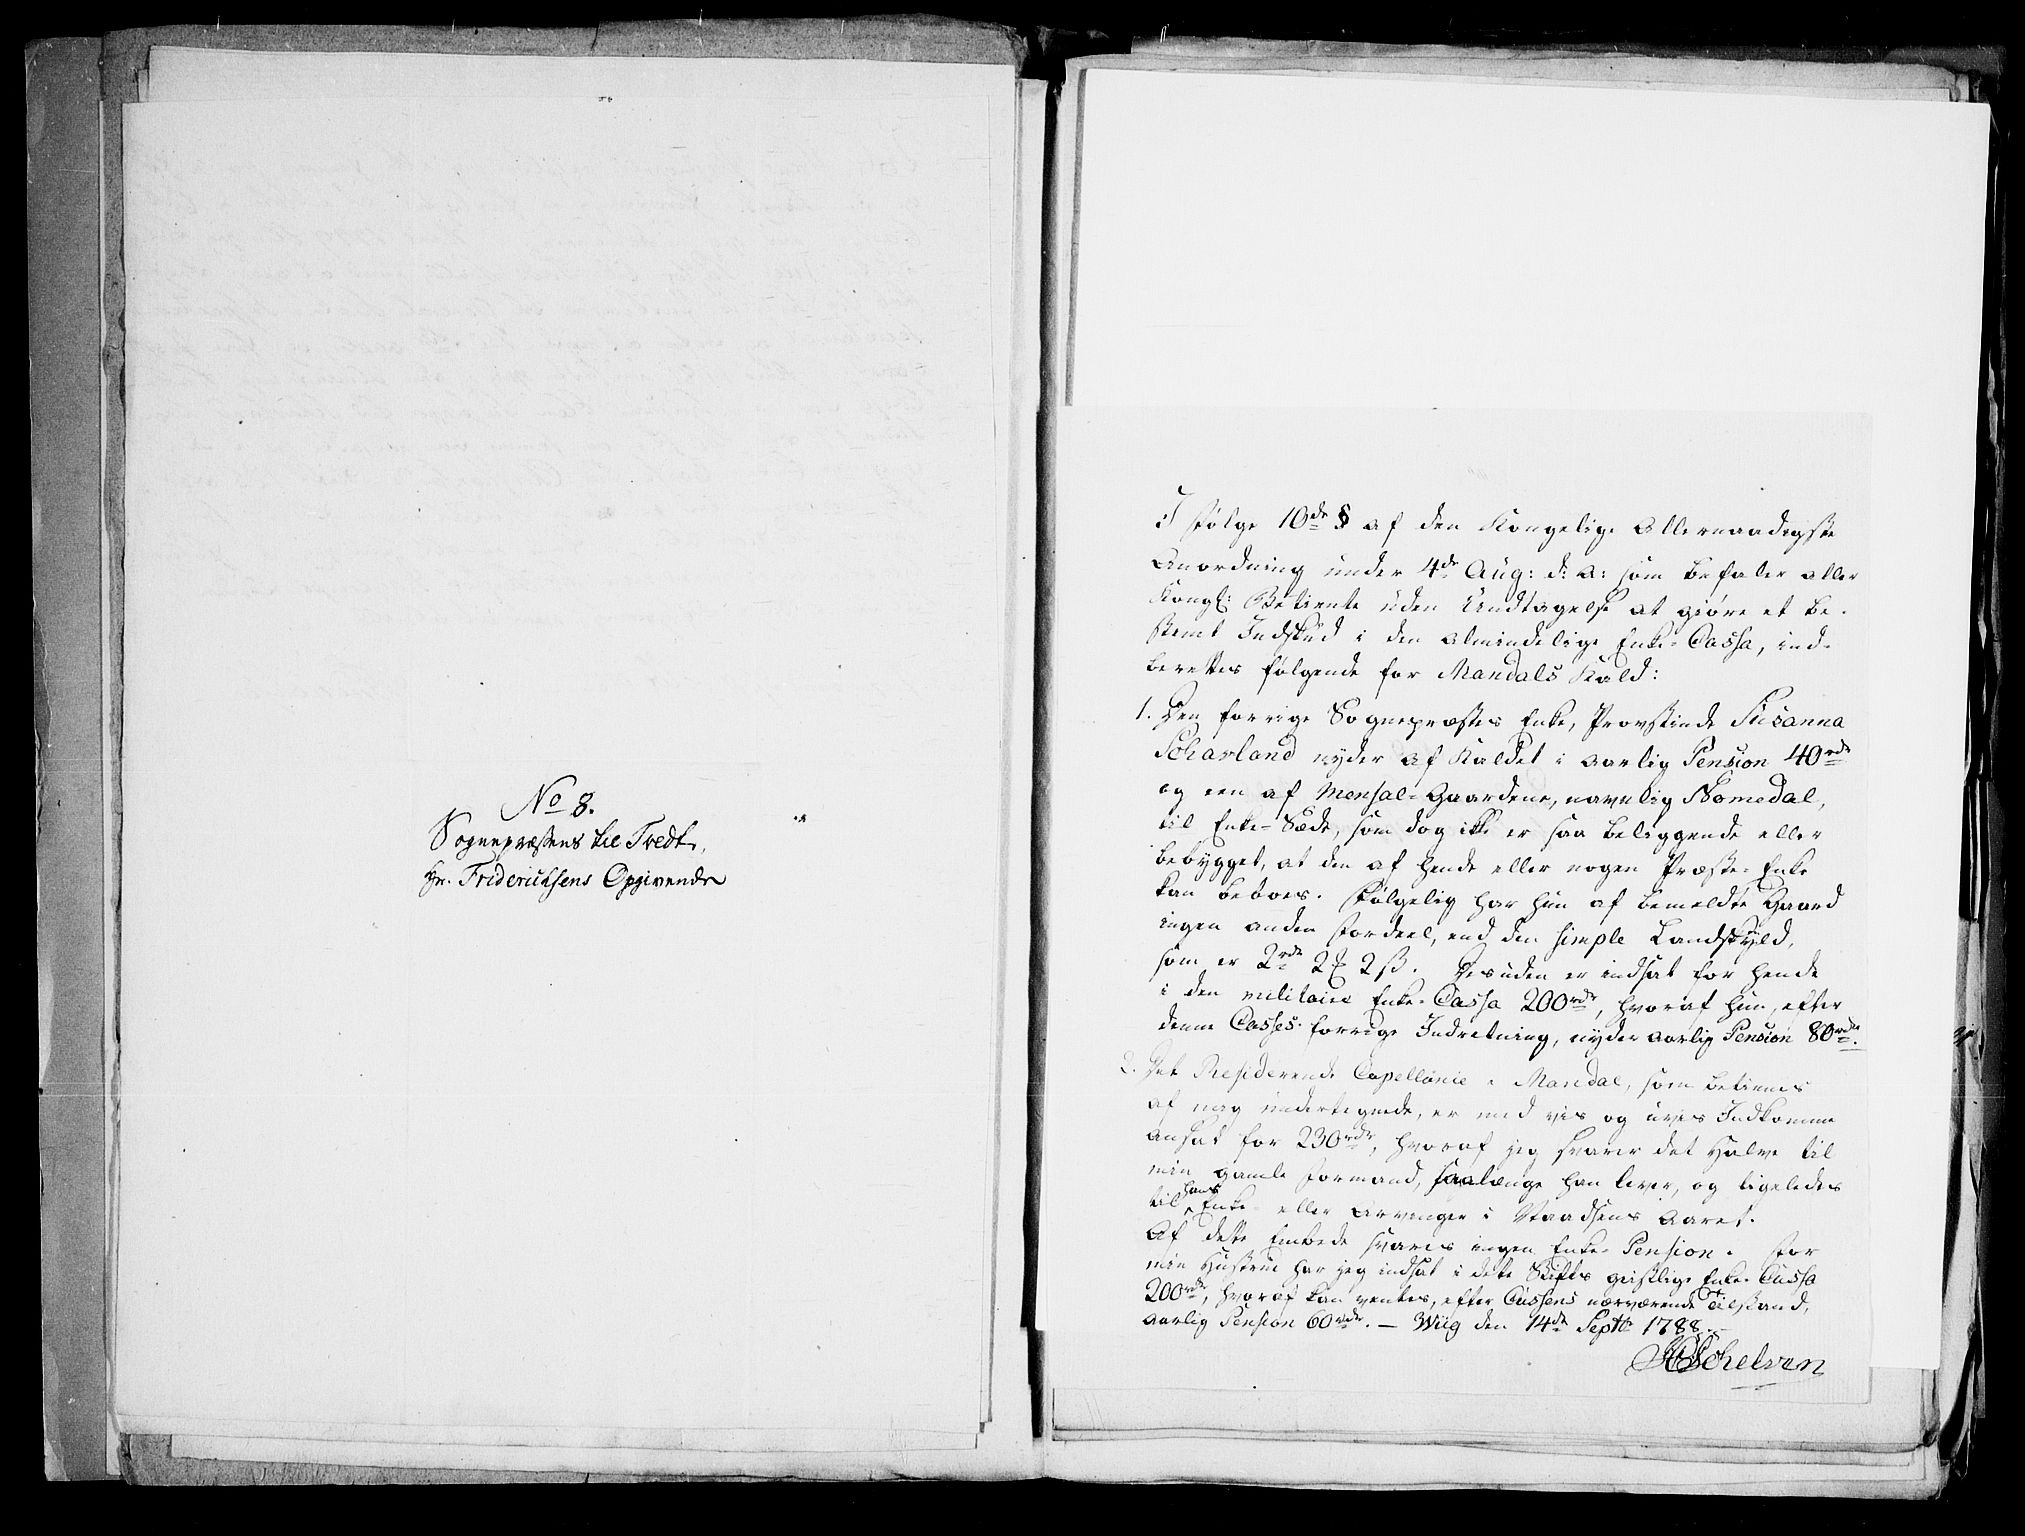 No 8.
Sognepræstens til Tredt,
Hr. Friderichsens Opgivende
I følge 10de § af den Kongelige Allernaadigste
Anordning under 4de Aug: d: A: som befaler aller
Kongl: Betiente uden Undtagelse at giøre et be-
stemt Indskud i den almindelige Enke-Cassa, ind-
berettes følgende for Mandals Kald:
1. Den forrige Sognepræstes Enke, Provstinde Susanna
Scharland nyder af Kaldet i aarlig Pension 40rdr
og een af Mensal-Gaardene, navnlig Homedal,
til Enke-Sæde, som dog ikke er saa beliggende eller
bebygget, at den af hende eller nogen Præste-Enke
kan beboes. Følgelig har hun af bemeldte Gaard
ingen anden Fordeel, end den simple Landskyld,
som er 2rdr 2 2ß. Desuden er indsat for hende
i den militaire Enke-Cassa 200rdr, hvoraf hun, efter
denne Casses forrige Indretning, nyder aarlig Pension 80rdr.
2. Det Residerende Capellanie i Mandal, som betienes
af mig undertegnede, er med vis og uvis Indkomme
ansat for 230rdr, hvoraf jeg svarer det Halve til
min gamle Formand, saalænge han lever, og ligeledes
til hans Enke eller Arvinger i Naadsens Aaret.
Af dette Embede svares ingen Enke-Pension. For
min Hustrue har jeg indsat i dette Stifts geistlige Enke-Cassa
200rdr, hvoraf kan ventes, efter Cassens nærværende Tilstand,
aarlig Pension 60rdr. – Wiig den 14de Septbr 1788.
Schelven